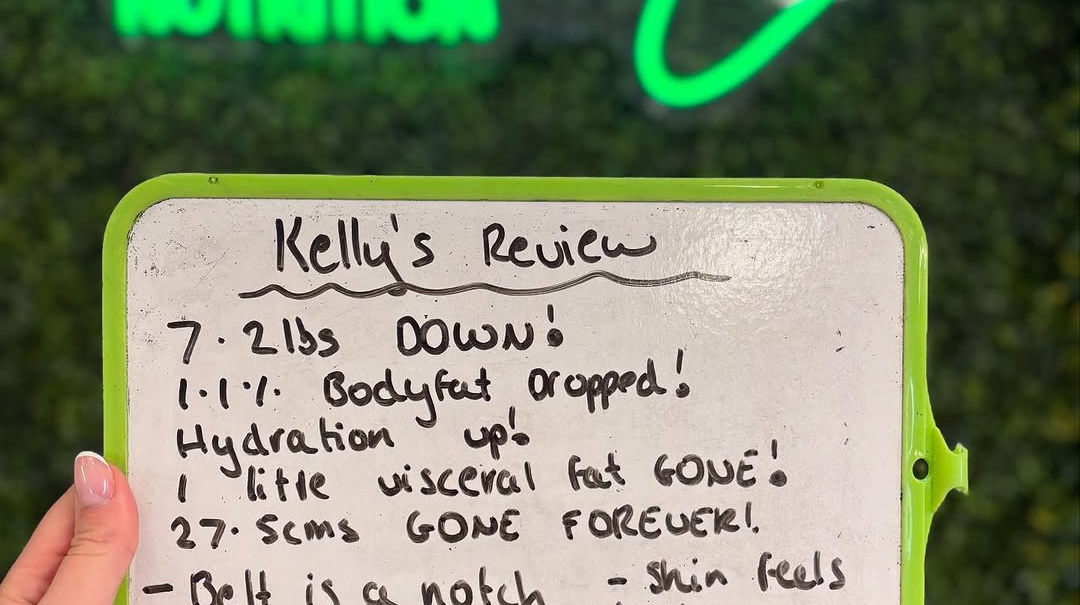 NUTRITION
Kelly's Review
7.2lbs DOWN!
1.1% Bodyfat Dropped!
Hydration up!
1 little visceral fat GONE!
27.5cms GONE FOREVER!
- Belt is a notch - Skin feels